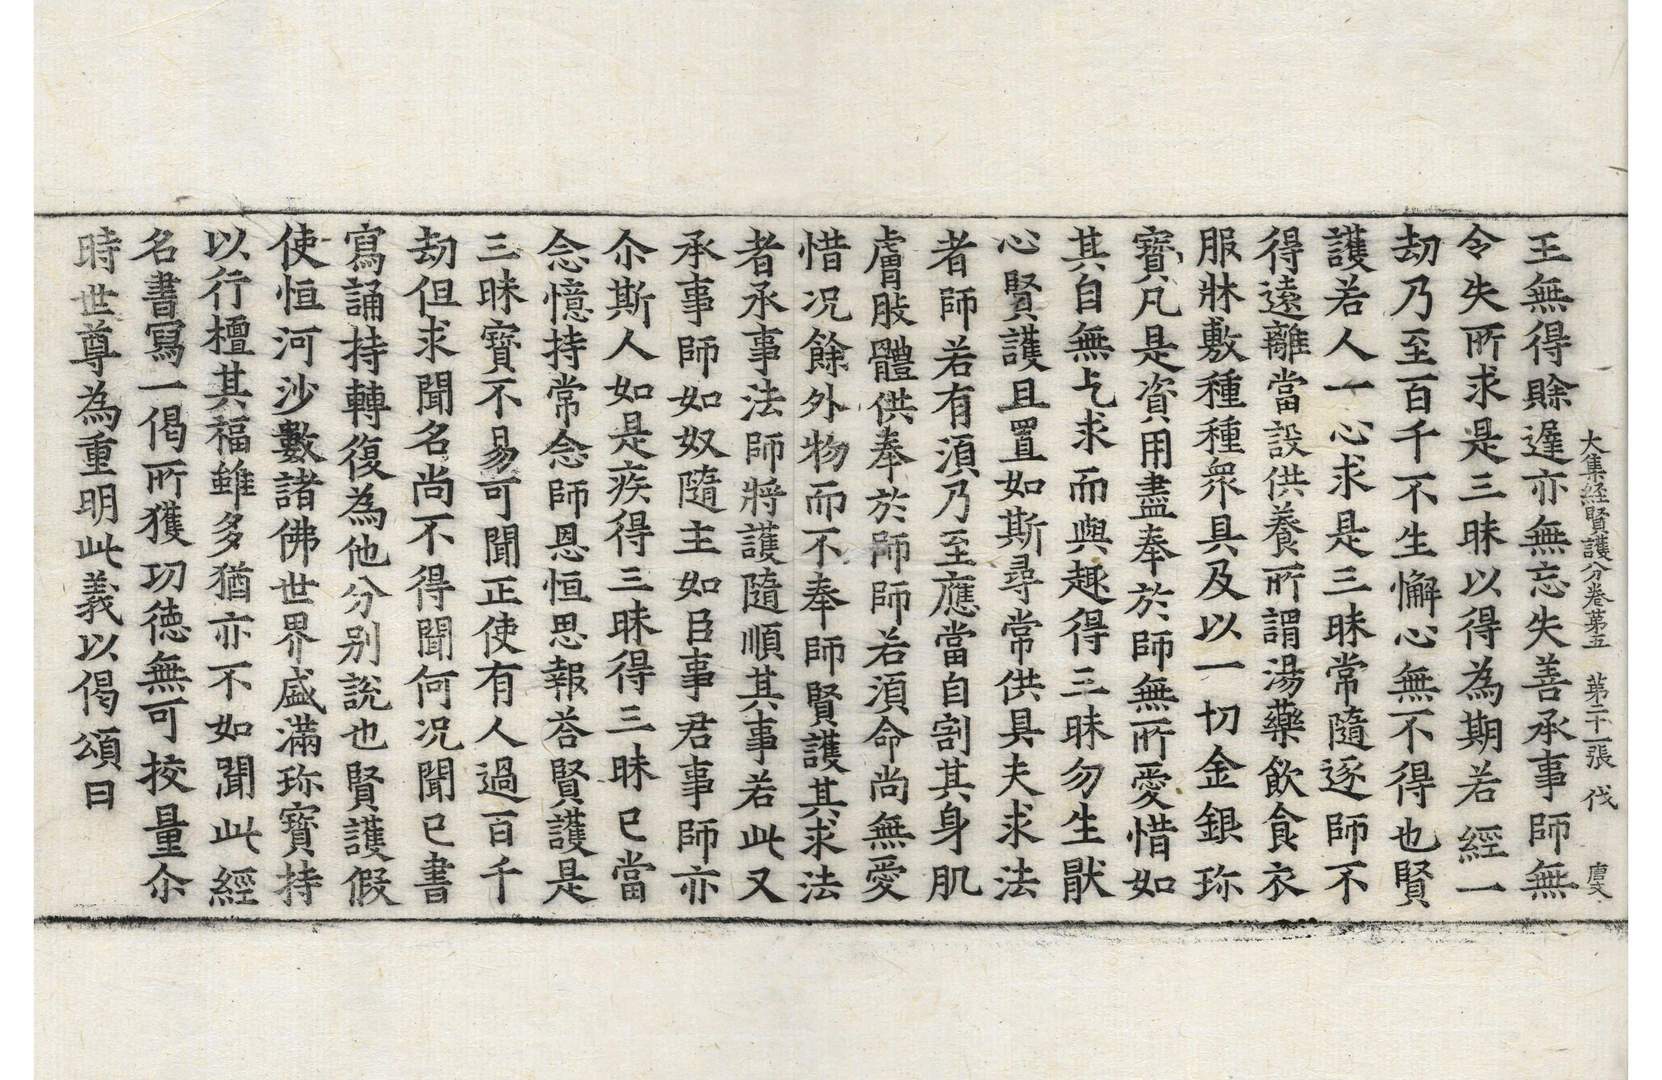 大集経賢護分卷第五 第二十一張 伐 唐文
王無得賖遲亦無忘失善承事師無
令失所求是三昧以得為期若經一
劫乃至百千不生懈心無不得也賢
護若人一心求是三昧常隨逐師不
得遠離當設供養所謂湯藥飲食衣
服牀敷種種衆具及以一切金銀珎
寶凡是資用盡奉於師無所愛惜如
其自無乞求而與趣得三昧勿生猒
心賢護且置如斯尋常供具夫求法
者師若有湏乃至應當自割其身肌
膚肢體供奉於師師若湏命尚無愛
惜况餘外物而不奉師賢護其求法
者承事法師將護隨順其事若此又
承事師如奴隨主如臣事君事師亦
尒斯人如是疾得三昧得三昧已當
念憶持常念師恩恒思報荅賢護是
三昧寶不易可聞正使有人過一百千
劫但求聞名尚不得聞何况聞已書
寫誦持轉復為他分別說也賢護假
使恒河沙數諸佛世界盛滿珎寶持
以行檀其福雖多猶亦不如聞此經
名書寫一偈所獲功徳無可挍量尒
時世尊為重明此義以偈頌曰